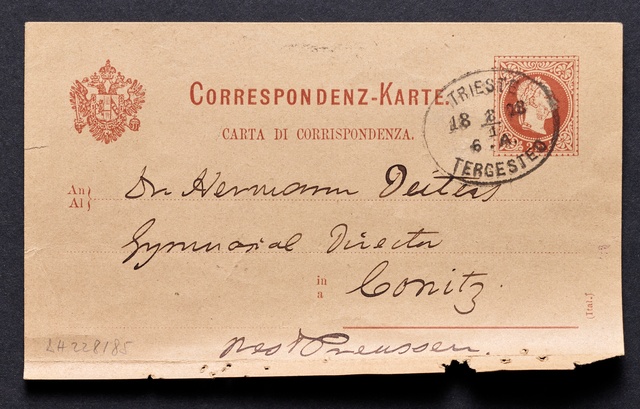 CORRESPONDENZ-KARTE.
CARTA DI CORRISPONDENZA.
TRIESTE
18 8/1 78
6. A.
TERGESTEO
An
Al
Dr. Hermann Deiters
Gymnasial Director
in
a
Conitz.
(Ital.)
West Preussen.
LH228/85